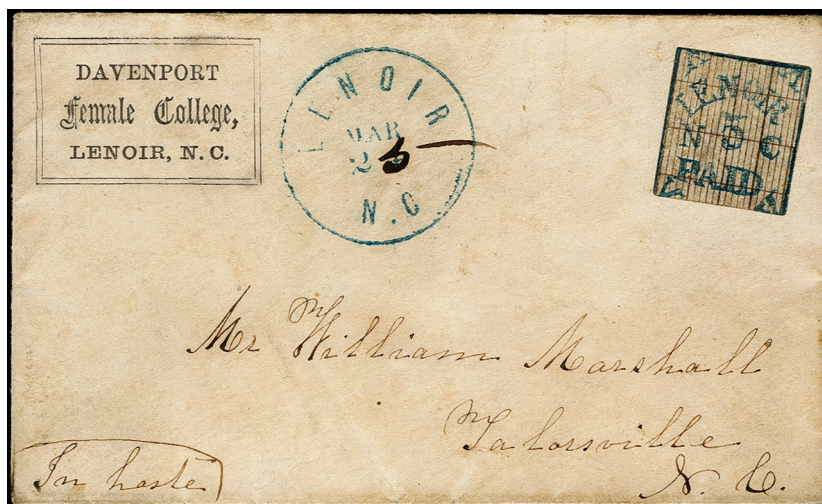 DAVENPORT
Female College,
LENOIR, N.C.
LENOIR
MAR
25
N.C
LENOIR
N 5 C
PAID
Mr William Marshall
Talorsville
N. C.
In haste